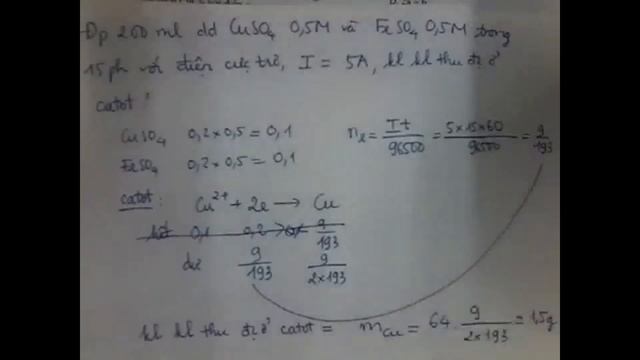 Đp 200 ml dd CuSO4 0,5M và FeSO4 0,5M trong
15 ph với điện cực trơ, I = 5A, kl kl thu đc ở
catot?
CuSO4 0,2 x 0,5 = 0,1
ne = It/96500 = 5x15x60/96500 = 9/193
FeSO4 0,2 x 0,5 = 0,1
catot: Cu2+ + 2e → Cu
0,1 0,2 9/193
dư 9/193 9/2x193
kl kl thu đc ở catot = mCu = 64 . 9/2x193 = 1,5g